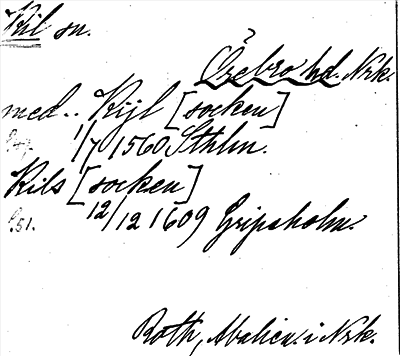 Kil sn.
Örebro hd. Nrk.
med.. Kijl [socken]
1/7 1560 Sthlm.
Kils [socken]
S. 51. 12/12 1609 Gripsholm.
Roth, i Nrk.